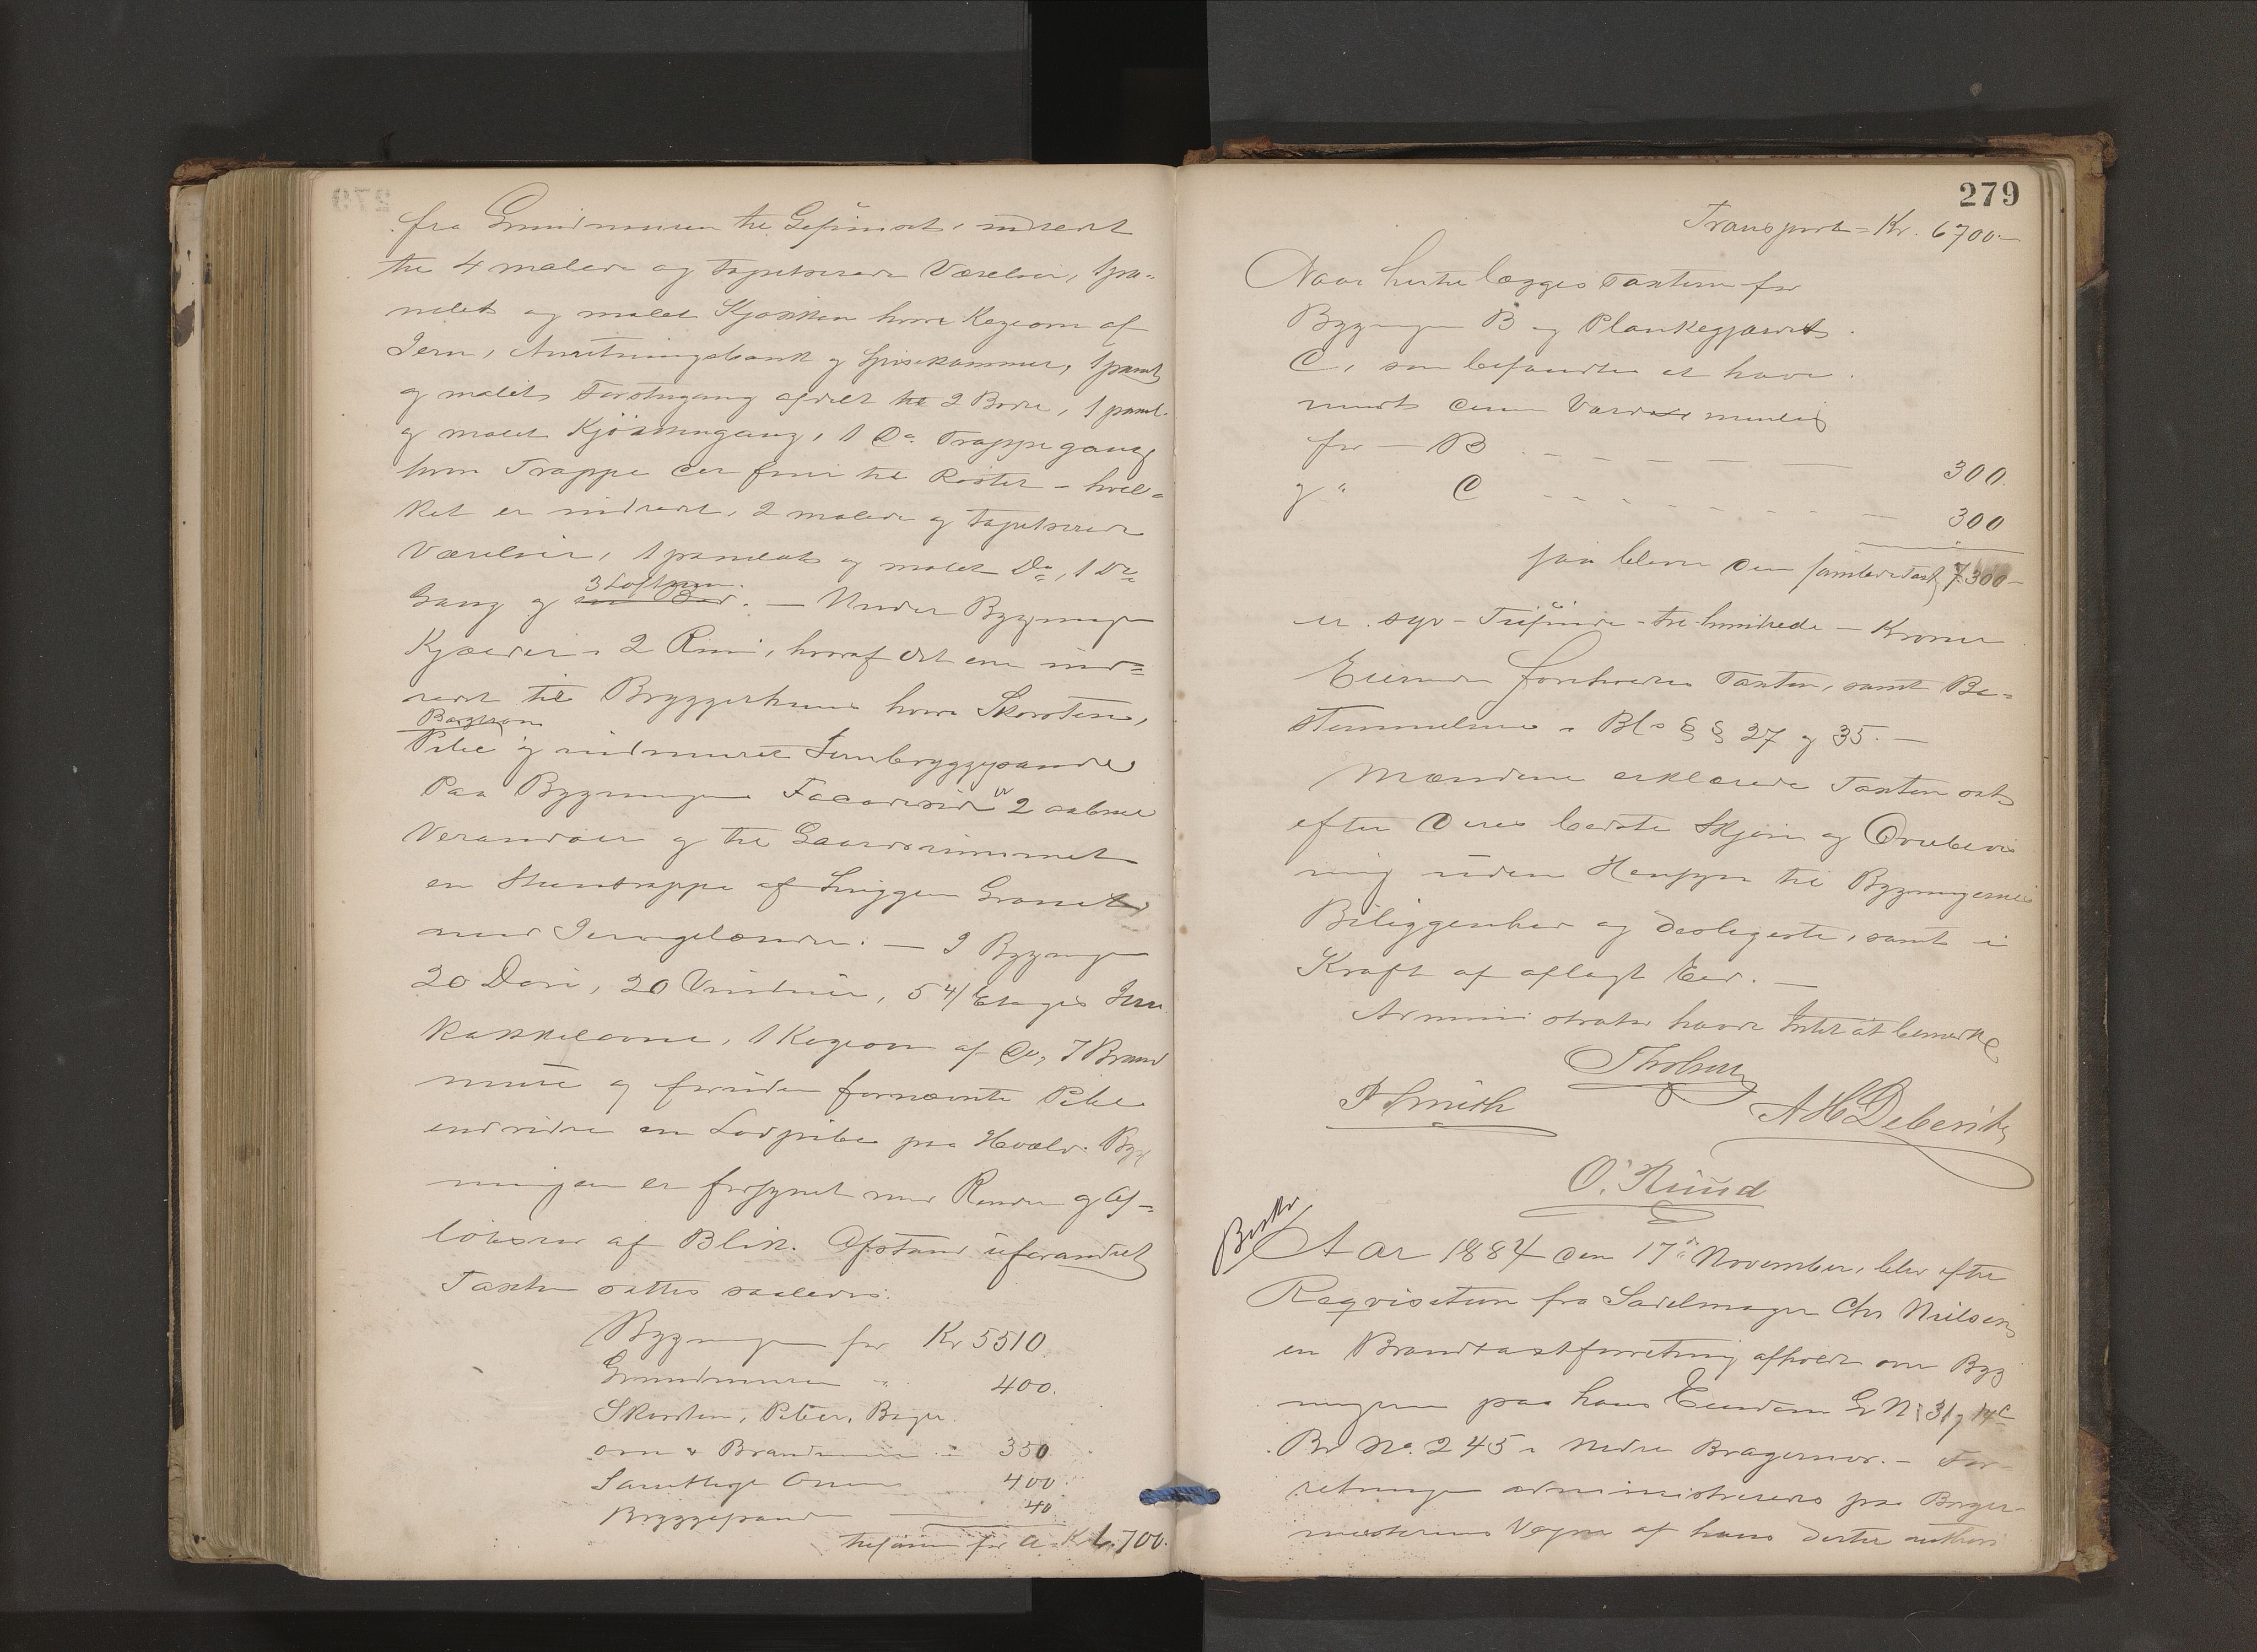 fra Grundmuren til Gesimset, indredt
til 4 malede og tapetserede Værelser, 1 pa-
nelet og malet Kjøkken hvori Kogeovn af
Jern, Anretningsbænk og Spisekammer, 1 panelt
og malet Forstugang afdelt til 2 Boder, 1 panel.
og malet Kjøkkengang, 1 Do Trappegang
hvori Trappe der fører til Røstet - hvil-
ket er indredet, 2 malede og tapetserede
Værelser, 1 panelet og malet Do, 1 Do
3 Loftsrum.
Gang og en Bod. — Under Bygningen
Kjælder i 2 Rum, hvoraf det ene ind=
redet til Bryggerhus hvori Skorsten,
Bagerovn
Pibe og indmuret Jernbryggepande
Paa Bygningens Facadeside er 2 aabne
Verandaer og til Gaardsrummet
en Stentrappe af huggen Granit
med Jerngelænder. — I Bygningen
20 Døre, 20 Vinduer, 5 4/ Etages Jern
kakkelovne, 1 Kogeovn af Do, 7 Brand
mure og foruden fornævnte Pibe
endvidere en Lodpibe paa Hvælv. Byg
ningen er forsynet med Render og Af-
løbsrør af Blik. Afstand uforandret
Taxten sattes saaledes:
Bygningen for Kr 5510
Grundmuren " 400.
Skorsten, Piber, Bager
ovn & Brandmure " 350
Samtlige Ovne 400
Bryggepande 40
tilsammen for A. Kr 6.700.
279
Transport = Kr. 6700 -
Naar hertil lægges Taxten for
Bygningen B og Plankegjærdet
C, som befandtes at have
samme Værdi nemlig
for — B 300.
og " C 300
saa blever den samlede Taxt 7.300 -
er syv - Tusinde - tre hundrede - Kroner
Eierinden foreholdtes Taxten, samt Be-
stemmelserne i Bl. §§ 27 og 35. —
Mændene erklærede Taxten sat
efter deres bedste Skjøn og Overbevis
ning uden Hensyn til Bygningernes
Beliggenhed og desligeste, samt i
Kraft af aflagt Eed. —
Administrator havde Intet at bemærke
A H Deberitz
O. Ruud
Beskr
Aar 1884 den 17de November, blev efter
Reqvisition fra Sadelmager Chr Nielsen
en Brandtaxtforretning afholdt over Byg
ningerne paa hans Eiendom G N: 31 og 14c
Br No. 245 i Nedre Bragernes. - For-
retningen administreredes paa Borger-
mesterens Vegne af hans dertil authori